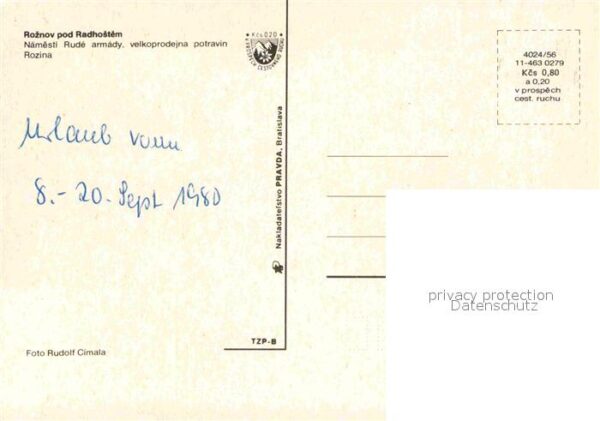 Rožnov pod Radhoštěm
Náměstí Rudé armády, velkoprodejna potravin
Rozina
Urlaub vom
8.-20. Sept 1980
Foto Rudolf Cimala
Kčs 0,20
Nakladateľstvo PRAVDA, Bratislava
TZP-B
4024/56
11-463 0279
Kčs 0,80
a 0,20
v prospěch
cest. ruchu
privacy protection
Datenschutz